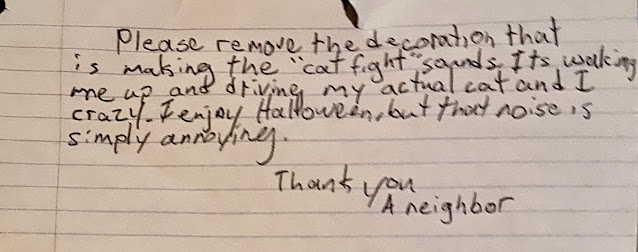 Please remove the decoration that
is making the "cat fight" sounds. Its waking
me up and driving my actual cat and I
crazy. I enjoy Halloween, but that noise is
simply annoying.
Thank you
A neighbor